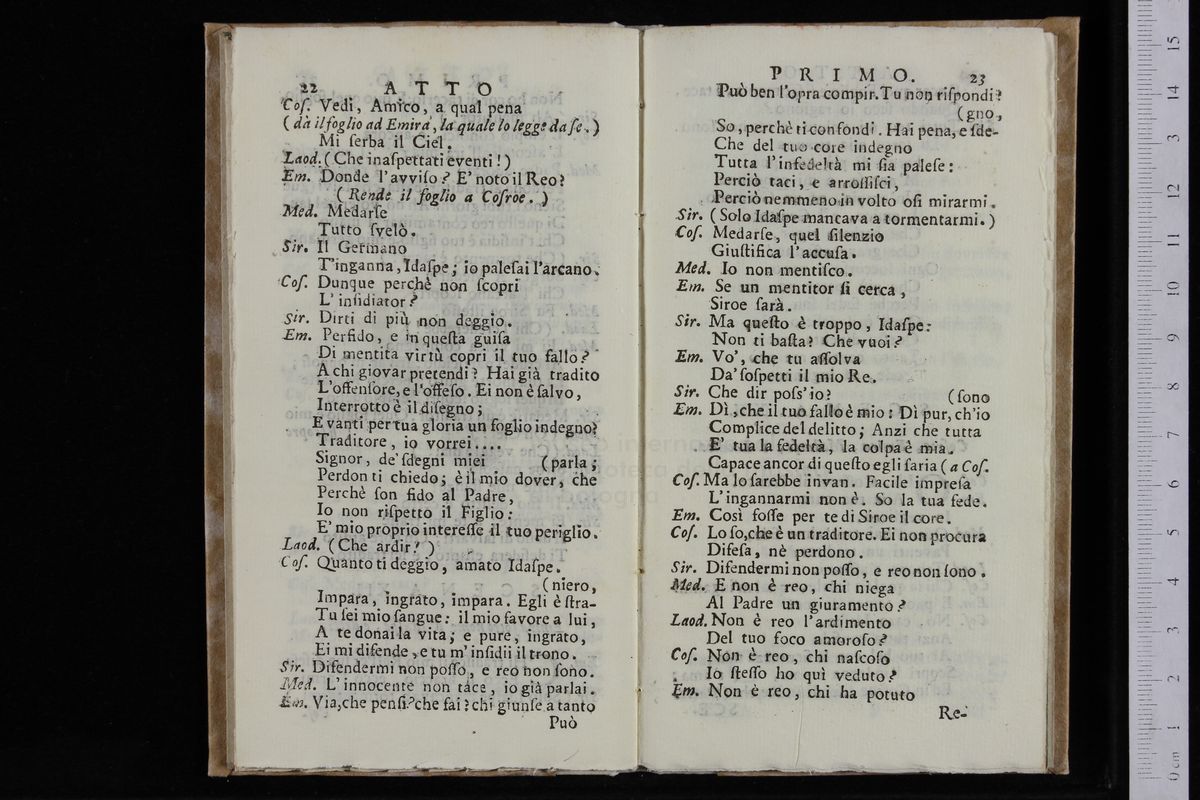 22 ATTO
Cos. Vedi, Amico, a qual pena
( da il foglio ad Emira, la quale lo legge da se. )
Mi serba il Ciel.
Laod. ( Che inaspettati eventi! )
Em. Donde l'avviso? E' noto il Reo?
( Rende il foglio a Cosroe. )
Med. Medarse
Tutto svelò.
Sir. Il Germano
T'inganna, Idaspe; io palesai l'arcano.
Cos. Dunque perchè non scopri
L' insidiator?
Sir. Dirti di più non deggio.
Em. Perfido, e in questa guisa
Di mentita virtù copri il tuo fallo?
A chi giovar pretendi? Hai già tradito
L'offensore, e l'offeso. Ei non è salvo,
Interrotto è il disegno;
E vanti per tua gloria un foglio indegno?
Traditore, io vorrei....
Signor, de' sdegni miei (parla;
Perdon ti chiedo; è il mio dover, che
Perchè son fido al Padre,
Io non rispetto il Figlio:
E' mio proprio interesse il tuo periglio.
Laod. ( Che ardir! )
Cos. Quanto ti deggio, amato Idaspe.
(niero,
Impara, ingrato, impara. Egli è stra-
Tu sei mio sangue: il mio favore a lui,
A te donai la vita; e pure, ingrato,
Ei mi difende, e tu m' insidii il trono.
Sir. Difendermi non posso, e reo non sono.
Med. L' innocente non tace, io già parlai.
Em. Via, che pensi? che fai? chi giunse a tanto
Può
PRIMO. 23
Può ben l'opra compir. Tu non rispondi?
(gno,
So, perchè ti confondi. Hai pena, e sde-
Che del tuo core indegno
Tutta l'infedeltà mi sia palese:
Perciò taci, e arrossisci,
Perciò nemmeno in volto osi mirarmi.
Sir. ( Solo Idaspe mancava a tormentarmi. )
Cos. Medarse, quel silenzio
Giustifica l'accusa.
Med. Io non mentisco.
Em. Se un mentitor si cerca,
Siroe sarà.
Sir. Ma questo è troppo, Idaspe:
Non ti basta? Che vuoi?
Em. Vo', che tu assolva
Da' sospetti il mio Re.
Sir. Che dir poss' io? (sono
Em. Dì, che il tuo fallo è mio: Dì pur, ch'io
Complice del delitto; Anzi che tutta
E' tua la fedeltà, la colpa è mia.
Capace ancor di questo egli saria ( a Cos.
Cos. Ma lo sarebbe invan. Facile impresa
L'ingannarmi non è. So la tua fede.
Em. Così fosse per te di Siroe il core.
Cos. Lo so, che è un traditore. Ei non procura
Difesa, nè perdono.
Sir. Difendermi non posso, e reo non sono.
Med. E non è reo, chi niega
Al Padre un giuramento?
Laod. Non è reo l'ardimento
Del tuo foco amoroso?
Cos. Non è reo, chi nascoso
Io stesso ho quì veduto?
Em. Non è reo, chi ha potuto
Re-